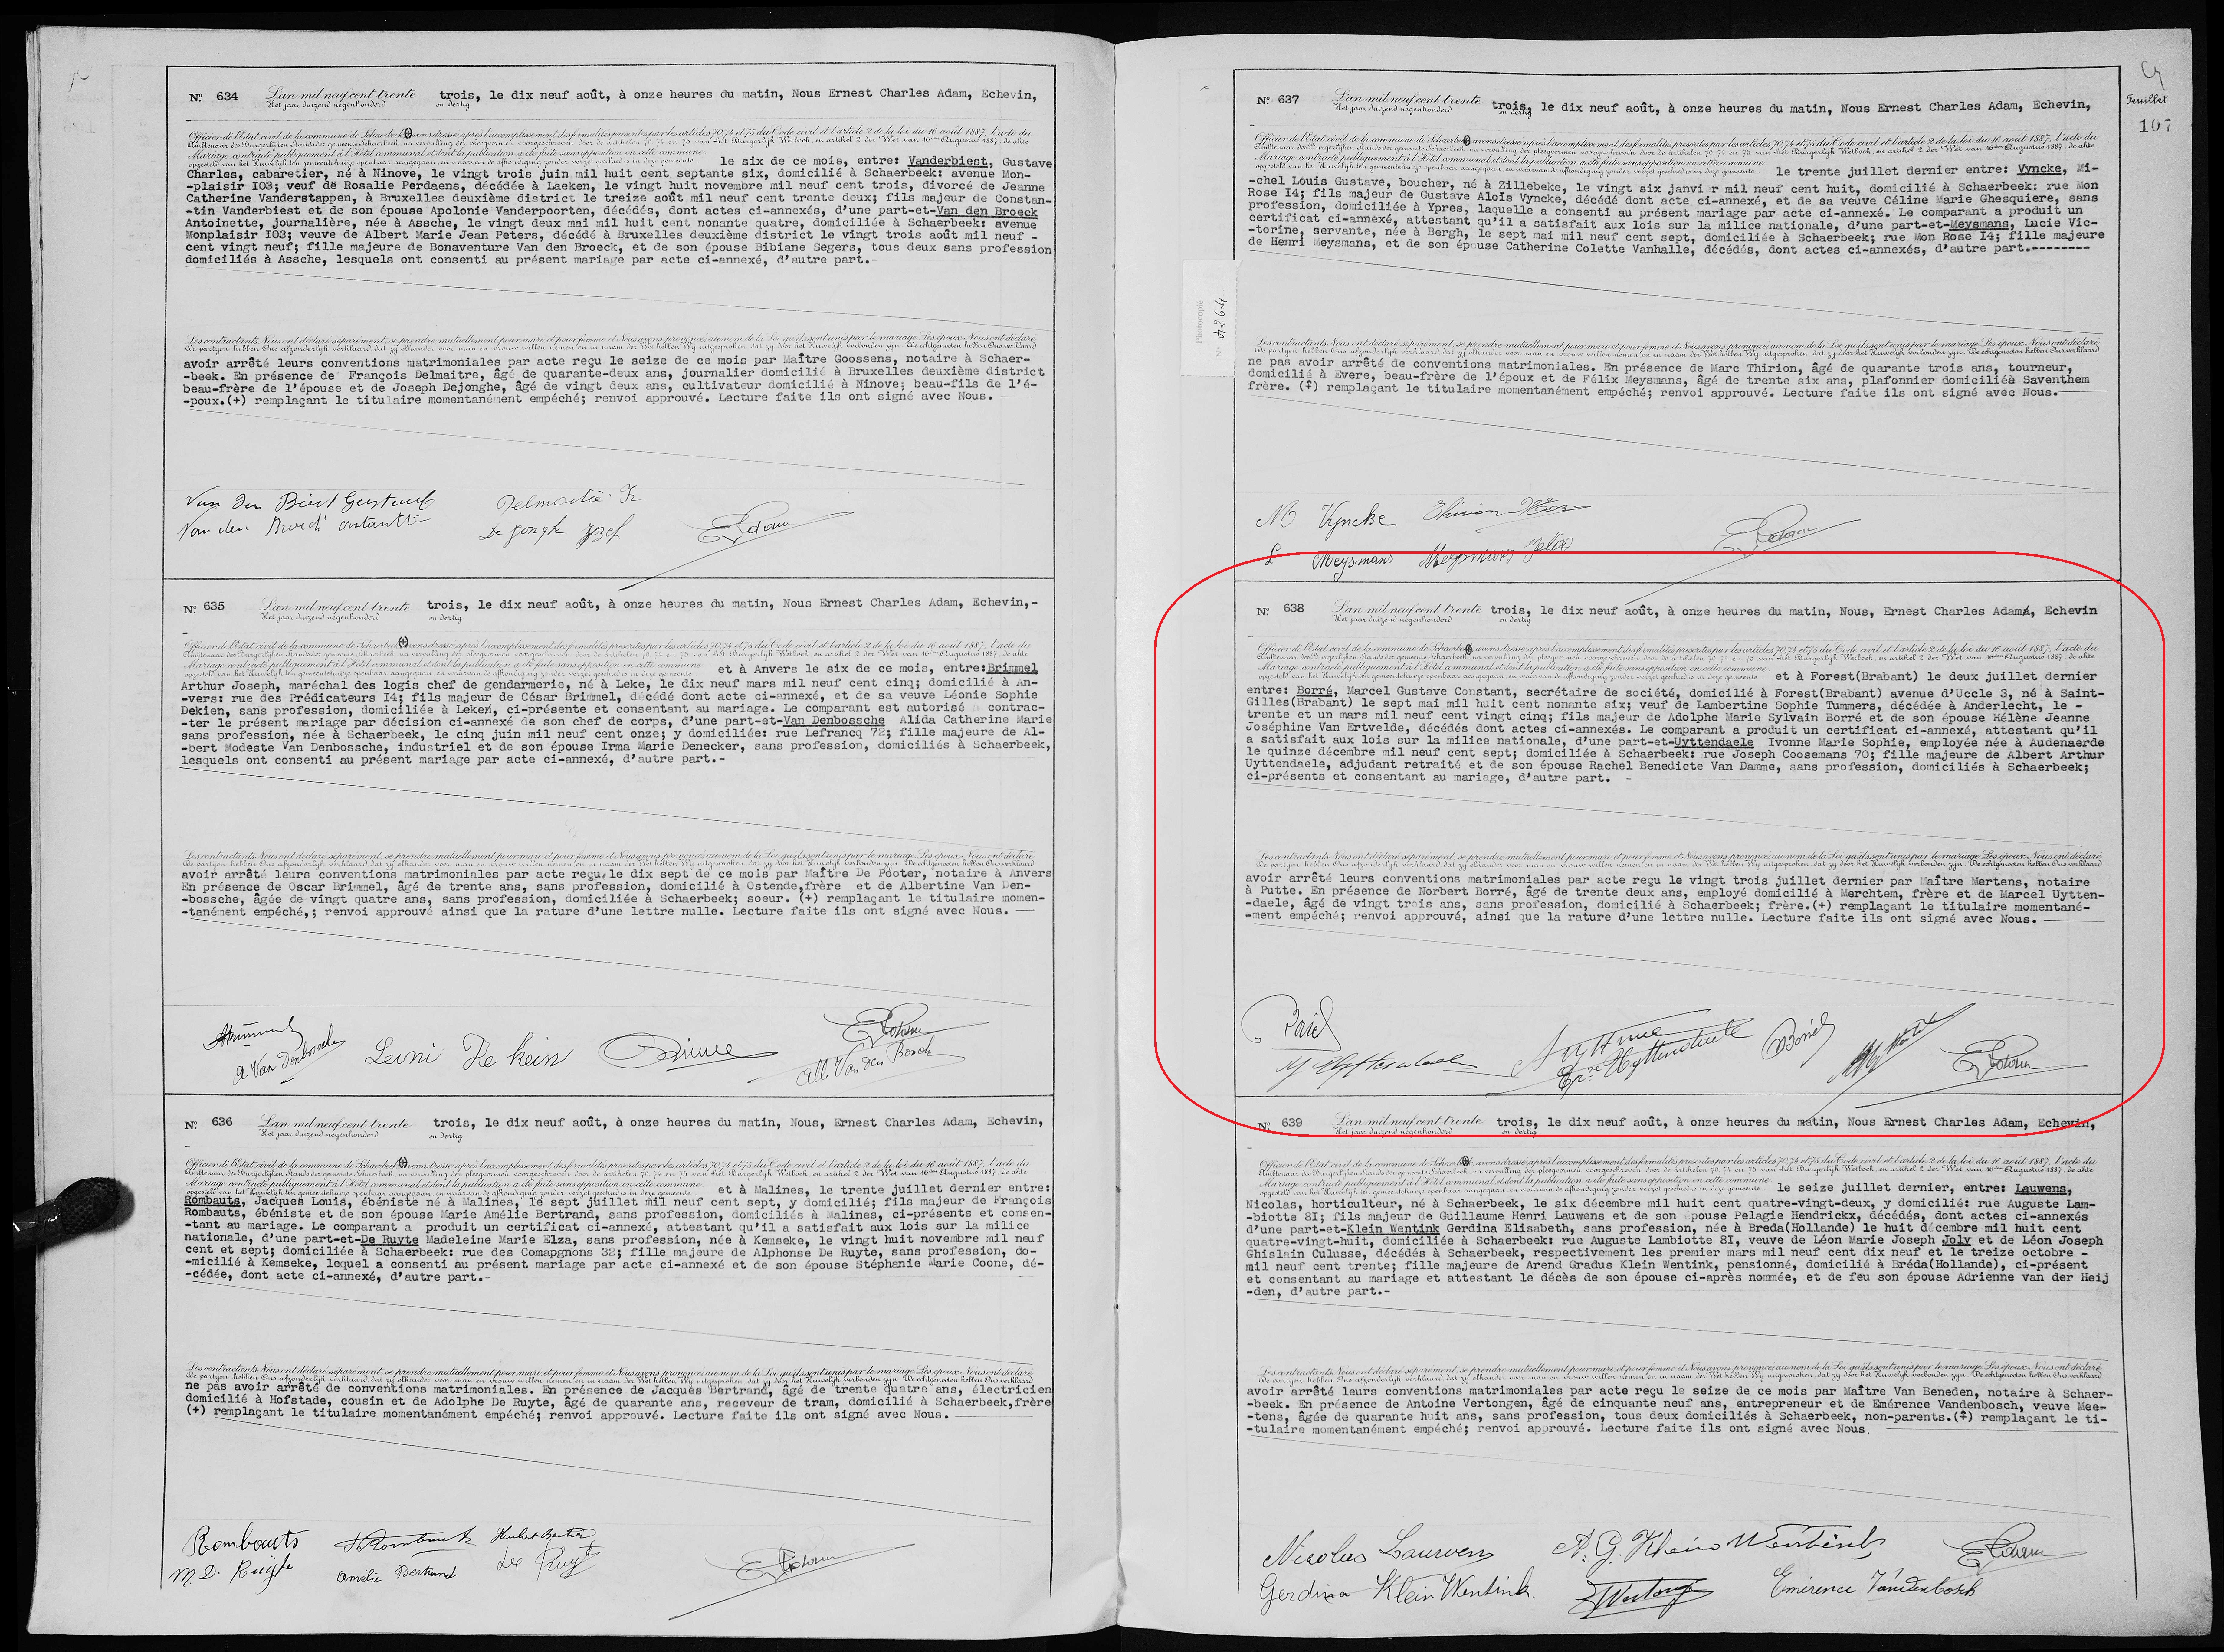 Nº 634 L'an mil neuf cent trente trois, le dix neuf août, à onze heures du matin, Nous Ernest Charles Adam, Echevin,
Het jaar duizend negenhonderd en dertig
Officier de l'Etat civil de la commune de Schaerbeek (+) avons dressé après l'accomplissement des formalités prescrites par les articles 70, 74 et 75 du Code civil et l'article 2 de la loi du 16 août 1887, l'acte du
Mariage contracté publiquement à l'Hôtel communal et dont la publication a été faite sans opposition en cette commune
le six de ce mois, entre: Vanderbiest, Gustave
Charles, cabaretier, né à Ninove, le vingt trois juin mil huit cent septante six, domicilié à Schaerbeek: avenue Mon-
-plaisir I03; veuf de Rosalie Perdaens, décédée à Laeken, le vingt huit novembre mil neuf cent trois, divorcé de Jeanne
Catherine Vanderstappen, à Bruxelles deuxième district le treize août mil neuf cent trente deux; fils majeur de Constan-
-tin Vanderbiest et de son épouse Apolonie Vanderpoorten, décédés, dont actes ci-annexés, d'une part-et-Van den Broeck
Antoinette, journalière, née à Assche, le vingt deux mai mil huit cent nonante quatre, domiciliée à Schaerbeek: avenue
Monplaisir I03; veuve de Albert Marie Jean Peters, décédé à Bruxelles deuxième district le vingt trois août mil neuf -
cent vingt neuf; fille majeure de Bonaventure Van den Broeck, et de son épouse Bibiane Segers, tous deux sans profession
domiciliés à Assche, lesquels ont consenti au présent mariage par acte ci-annexé, d'autre part.-
Les contractants Nous ont déclaré séparément, se prendre mutuellement pour mari et pour femme et Nous avons prononcé au nom de la Loi qu'ils sont unis par le mariage. Les époux Nous ont déclaré
avoir arrêté leurs conventions matrimoniales par acte reçu le seize de ce mois par Maître Goossens, notaire à Schaer-
-beek. En présence de François Delmaitre, âgé de quarante-deux ans, journalier domicilié à Bruxelles deuxième district
beau-frère de l'épouse et de Joseph Dejonghe, âgé de vingt deux ans, cultivateur domicilié à Ninove; beau-fils de l'é-
-poux.(+) remplaçant le titulaire momentanément empéché; renvoi approuvé. Lecture faite ils ont signé avec Nous.
Van den Biest Gustaaf
De Jongh Jozef
Nº 635 L'an mil neuf cent trente trois, le dix neuf août, à onze heures du matin, Nous Ernest Charles Adam, Echevin,-
Het jaar duizend negenhonderd en dertig
Officier de l'Etat civil de la commune de Schaerbeek (+) avons dressé après l'accomplissement des formalités prescrites par les articles 70, 74 et 75 du Code civil et l'article 2 de la loi du 16 août 1887, l'acte du
Mariage contracté publiquement à l'Hôtel communal et dont la publication a été faite sans opposition en cette commune
et à Anvers le six de ce mois, entre:Brimmel
Arthur Joseph, maréchal des logis chef de gendarmerie, né à Leke, le dix neuf mars mil neuf cent cinq; domicilié à An-
-vers: rue des Prédicateurs I4; fils majeur de César Brimmel, décédé dont acte ci-annexé, et de sa veuve Léonie Sophie
Dekien, sans profession, domiciliée à Leken, ci-présente et consentant au mariage. Le comparant est autorisé à contrac-
-ter le présent mariage par décision ci-annexé de son chef de corps, d'une part-et-Van Denbossche Alida Catherine Marie
sans profession, née à Schaerbeek, le cinq juin mil neuf cent onze; y domiciliée: rue Lefrancq 72; fille majeure de Al-
-bert Modeste Van Denbossche, industriel et de son épouse Irma Marie Denecker, sans profession, domiciliés à Schaerbeek,
lesquels ont consenti au présent mariage par acte ci-annexé, d'autre part.-
Les contractants Nous ont déclaré séparément, se prendre mutuellement pour mari et pour femme et Nous avons prononcé au nom de la Loi qu'ils sont unis par le mariage. Les époux Nous ont déclaré
avoir arrêté leurs conventions matrimoniales par acte reçu, le dix sept de ce mois par Maître De Pooter, notaire à Anvers
En présence de Oscar Brimmel, âgé de trente ans, sans profession, domicilié à Ostende,frère et de Albertine Van Den-
-bossche, âgée de vingt quatre ans, sans profession, domiciliée à Schaerbeek; soeur. (+) remplaçant le titulaire momen-
-tanément empéché,; renvoi approuvé ainsi que la rature d'une lettre nulle. Lecture faite ils ont signé avec Nous.
A Van Denbossche
Leoni De kein
Nº 636 L'an mil neuf cent trente trois, le dix neuf août, à onze heures du matin, Nous, Ernest Charles Adam, Echevin,
Het jaar duizend negenhonderd en dertig
Officier de l'Etat civil de la commune de Schaerbeek (+) avons dressé après l'accomplissement des formalités prescrites par les articles 70, 74 et 75 du Code civil et l'article 2 de la loi du 16 août 1887, l'acte du
Mariage contracté publiquement à l'Hôtel communal et dont la publication a été faite sans opposition en cette commune
et à Malines, le trente juillet dernier entre:
Rombauts, Jacques Louis, ébéniste né à Malines, le sept juillet mil neuf cent sept, y domicilié; fils majeur de François
Rombauts, ébéniste et de son épouse Marie Amélie Bertrand, sans profession, domiciliés à Malines, ci-présents et consen-
-tant au mariage. Le comparant a produit un certificat ci-annexé, attestant qu'il a satisfait aux lois sur la milice
nationale, d'une part-et-De Ruyte Madeleine Marie Elza, sans profession, née à Kemseke, le vingt huit novembre mil neuf
cent et sept; domiciliée à Schaerbeek: rue des Comapgnons 32; fille majeure de Alphonse De Ruyte, sans profession, do-
-micilié à Kemseke, lequel a consenti au présent mariage par acte ci-annexé et de son épouse Stéphanie Marie Coone, dé-
-cédée, dont acte ci-annexé, d'autre part.-
Les contractants Nous ont déclaré séparément, se prendre mutuellement pour mari et pour femme et Nous avons prononcé au nom de la Loi qu'ils sont unis par le mariage. Les époux Nous ont déclaré
ne pas avoir arrêté de conventions matrimoniales. En présence de Jacques Bertrand, âgé de trente quatre ans, électricien
domicilié à Hofstade, cousin et de Adolphe De Ruyte, âgé de quarante ans, receveur de tram, domicilié à Schaerbeek,frère
(+) remplaçant le titulaire momentanément empéché; renvoi approuvé. Lecture faite ils ont signé avec Nous.
Rombouts
Amélie Bertrand
Feuillet
107
Photocopié
Nº 4264
Nº 637 L'an mil neuf cent trente trois, le dix neuf août, à onze heures du matin, Nous Ernest Charles Adam, Echevin,
Het jaar duizend negenhonderd en dertig
Officier de l'Etat civil de la commune de Schaerbeek (+) avons dressé après l'accomplissement des formalités prescrites par les articles 70, 74 et 75 du Code civil et l'article 2 de la loi du 16 août 1887, l'acte du
Mariage contracté publiquement à l'Hôtel communal et dont la publication a été faite sans opposition en cette commune
le trente juillet dernier entre: Vyncke, Mi-
-chel Louis Gustave, boucher, né à Zillebeke, le vingt six janvier mil neuf cent huit, domicilié à Schaerbeek: rue Mon
Rose I4; fils majeur de Gustave Aloïs Vyncke, décédé dont acte ci-annexé, et de sa veuve Céline Marie Ghesquiere, sans
profession, domiciliée à Ypres, laquelle a consenti au présent mariage par acte ci-annexé. Le comparant a produit un
certificat ci-annexé, attestant qu'il a satisfait aux lois sur la milice nationale, d'une part-et-Meysmans, Lucie Vic-
-torine, servante, née à Bergh, le sept mai mil neuf cent sept, domiciliée à Schaerbeek; rue Mon Rose I4; fille majeure
de Henri Meysmans, et de son épouse Catherine Colette Vanhalle, décédés, dont actes ci-annexés, d'autre part.---------
Les contractants Nous ont déclaré séparément, se prendre mutuellement pour mari et pour femme et Nous avons prononcé au nom de la Loi qu'ils sont unis par le mariage. Les époux Nous ont déclaré
ne pas avoir arrêté de conventions matrimoniales. En présence de Marc Thirion, âgé de quarante trois ans, tourneur,
domicilié à Evere, beau-frère de l'époux et de Félix Meysmans, âgé de trente six ans, plafonnier domiciliéà Saventhem
frère. (+) remplaçant le titulaire momentanément empéché; renvoi approuvé. Lecture faite ils ont signé avec Nous.
M Vyncke
L Meysmans Meysmans Felix
Nº 638 L'an mil neuf cent trente trois, le dix neuf août, à onze heures du matin, Nous, Ernest Charles Adam, Echevin
Het jaar duizend negenhonderd en dertig
Officier de l'Etat civil de la commune de Schaerbeek (+) avons dressé après l'accomplissement des formalités prescrites par les articles 70, 74 et 75 du Code civil et l'article 2 de la loi du 16 août 1887, l'acte du
Mariage contracté publiquement à l'Hôtel communal et dont la publication a été faite sans opposition en cette commune
et à Forest(Brabant) le deux juillet dernier
entre: Borré, Marcel Gustave Constant, secrétaire de société, domicilié à Forest(Brabant) avenue d'Uccle 3, né à Saint-
Gilles(Brabant) le sept mai mil huit cent nonante six; veuf de Lambertine Sophie Tummers, décédée à Anderlecht, le -
trente et un mars mil neuf cent vingt cinq; fils majeur de Adolphe Marie Sylvain Borré et de son épouse Hélène Jeanne
Joséphine Van Ertvelde, décédés dont actes ci-annexés. Le comparant a produit un certificat ci-annexé, attestant qu'il
a satisfait aux lois sur la milice nationale, d'une part-et-Uyttendaele Ivonne Marie Sophie, employée née à Audenaerde
le quinze décembre mil neuf cent sept; domiciliée à Schaerbeek: rue Joseph Coosemans 70; fille majeure de Albert Arthur
Uyttendaele, adjudant retraité et de son épouse Rachel Benedicte Van Damme, sans profession, domiciliés à Schaerbeek;
ci-présents et consentant au mariage, d'autre part. -
Les contractants Nous ont déclaré séparément, se prendre mutuellement pour mari et pour femme et Nous avons prononcé au nom de la Loi qu'ils sont unis par le mariage. Les époux Nous ont déclaré
avoir arrêté leurs conventions matrimoniales par acte reçu le vingt trois juillet dernier par Maître Mertens, notaire
à Putte. En présence de Norbert Borré, âgé de trente deux ans, employé domicilié à Merchtem, frère et de Marcel Uytten-
-daele, âgé de vingt trois ans, sans profession, domicilié à Schaerbeek; frère.(+) remplaçant le titulaire momentané-
-ment empéché; renvoi approuvé, ainsi que la rature d'une lettre nulle. Lecture faite ils ont signé avec Nous.
Nº 639 L'an mil neuf cent trente trois, le dix neuf août, à onze heures du matin, Nous Ernest Charles Adam, Echevin,
Het jaar duizend negenhonderd en dertig
Officier de l'Etat civil de la commune de Schaerbeek (+) avons dressé après l'accomplissement des formalités prescrites par les articles 70, 74 et 75 du Code civil et l'article 2 de la loi du 16 août 1887, l'acte du
Mariage contracté publiquement à l'Hôtel communal et dont la publication a été faite sans opposition en cette commune
le seize juillet dernier, entre: Lauwens,
Nicolas, horticulteur, né à Schaerbeek, le six décembre mil huit cent quatre-vingt-deux, y domicilié: rue Auguste Lam-
-biotte 8I; fils majeur de Guillaume Henri Lauwens et de son épouse Pelagie Hendrickx, décédés, dont actes ci-annexés
d'une part-et-Klein Wentink Gerdina Elisabeth, sans profession, née à Breda(Hollande) le huit décembre mil huit cent
quatre-vingt-huit, domiciliée à Schaerbeek: rue Auguste Lambiotte 8I, veuve de Léon Marie Joseph Joly et de Léon Joseph
Ghislain Culusse, décédés à Schaerbeek, respectivement les premier mars mil neuf cent dix neuf et le treize octobre -
mil neuf cent trente; fille majeure de Arend Gradus Klein Wentink, pensionné, domicilié à Bréda(Hollande), ci-présent
et consentant au mariage et attestant le décès de son épouse ci-après nommée, et de feu son épouse Adrienne van der Heij
-den, d'autre part.-
Les contractants Nous ont déclaré séparément, se prendre mutuellement pour mari et pour femme et Nous avons prononcé au nom de la Loi qu'ils sont unis par le mariage. Les époux Nous ont déclaré
avoir arrêté leurs conventions matrimoniales par acte reçu le seize de ce mois par Maître Van Beneden, notaire à Schaer-
-beek. En présence de Antoine Vertongen, âgé de cinquante neuf ans, entrepreneur et de Emérence Vandenbosch, veuve Mee-
-tens, âgée de quarante huit ans, sans profession, tous deux domiciliés à Schaerbeek, non-parents.(+) remplaçant le ti-
-tulaire momentanément empéché; renvoi approuvé. Lecture faite ils ont signé avec Nous.
Nicolas Lauwens A. G. Klein Wentink
Gerdina Klein Wentink. Emérence Vandenbosch